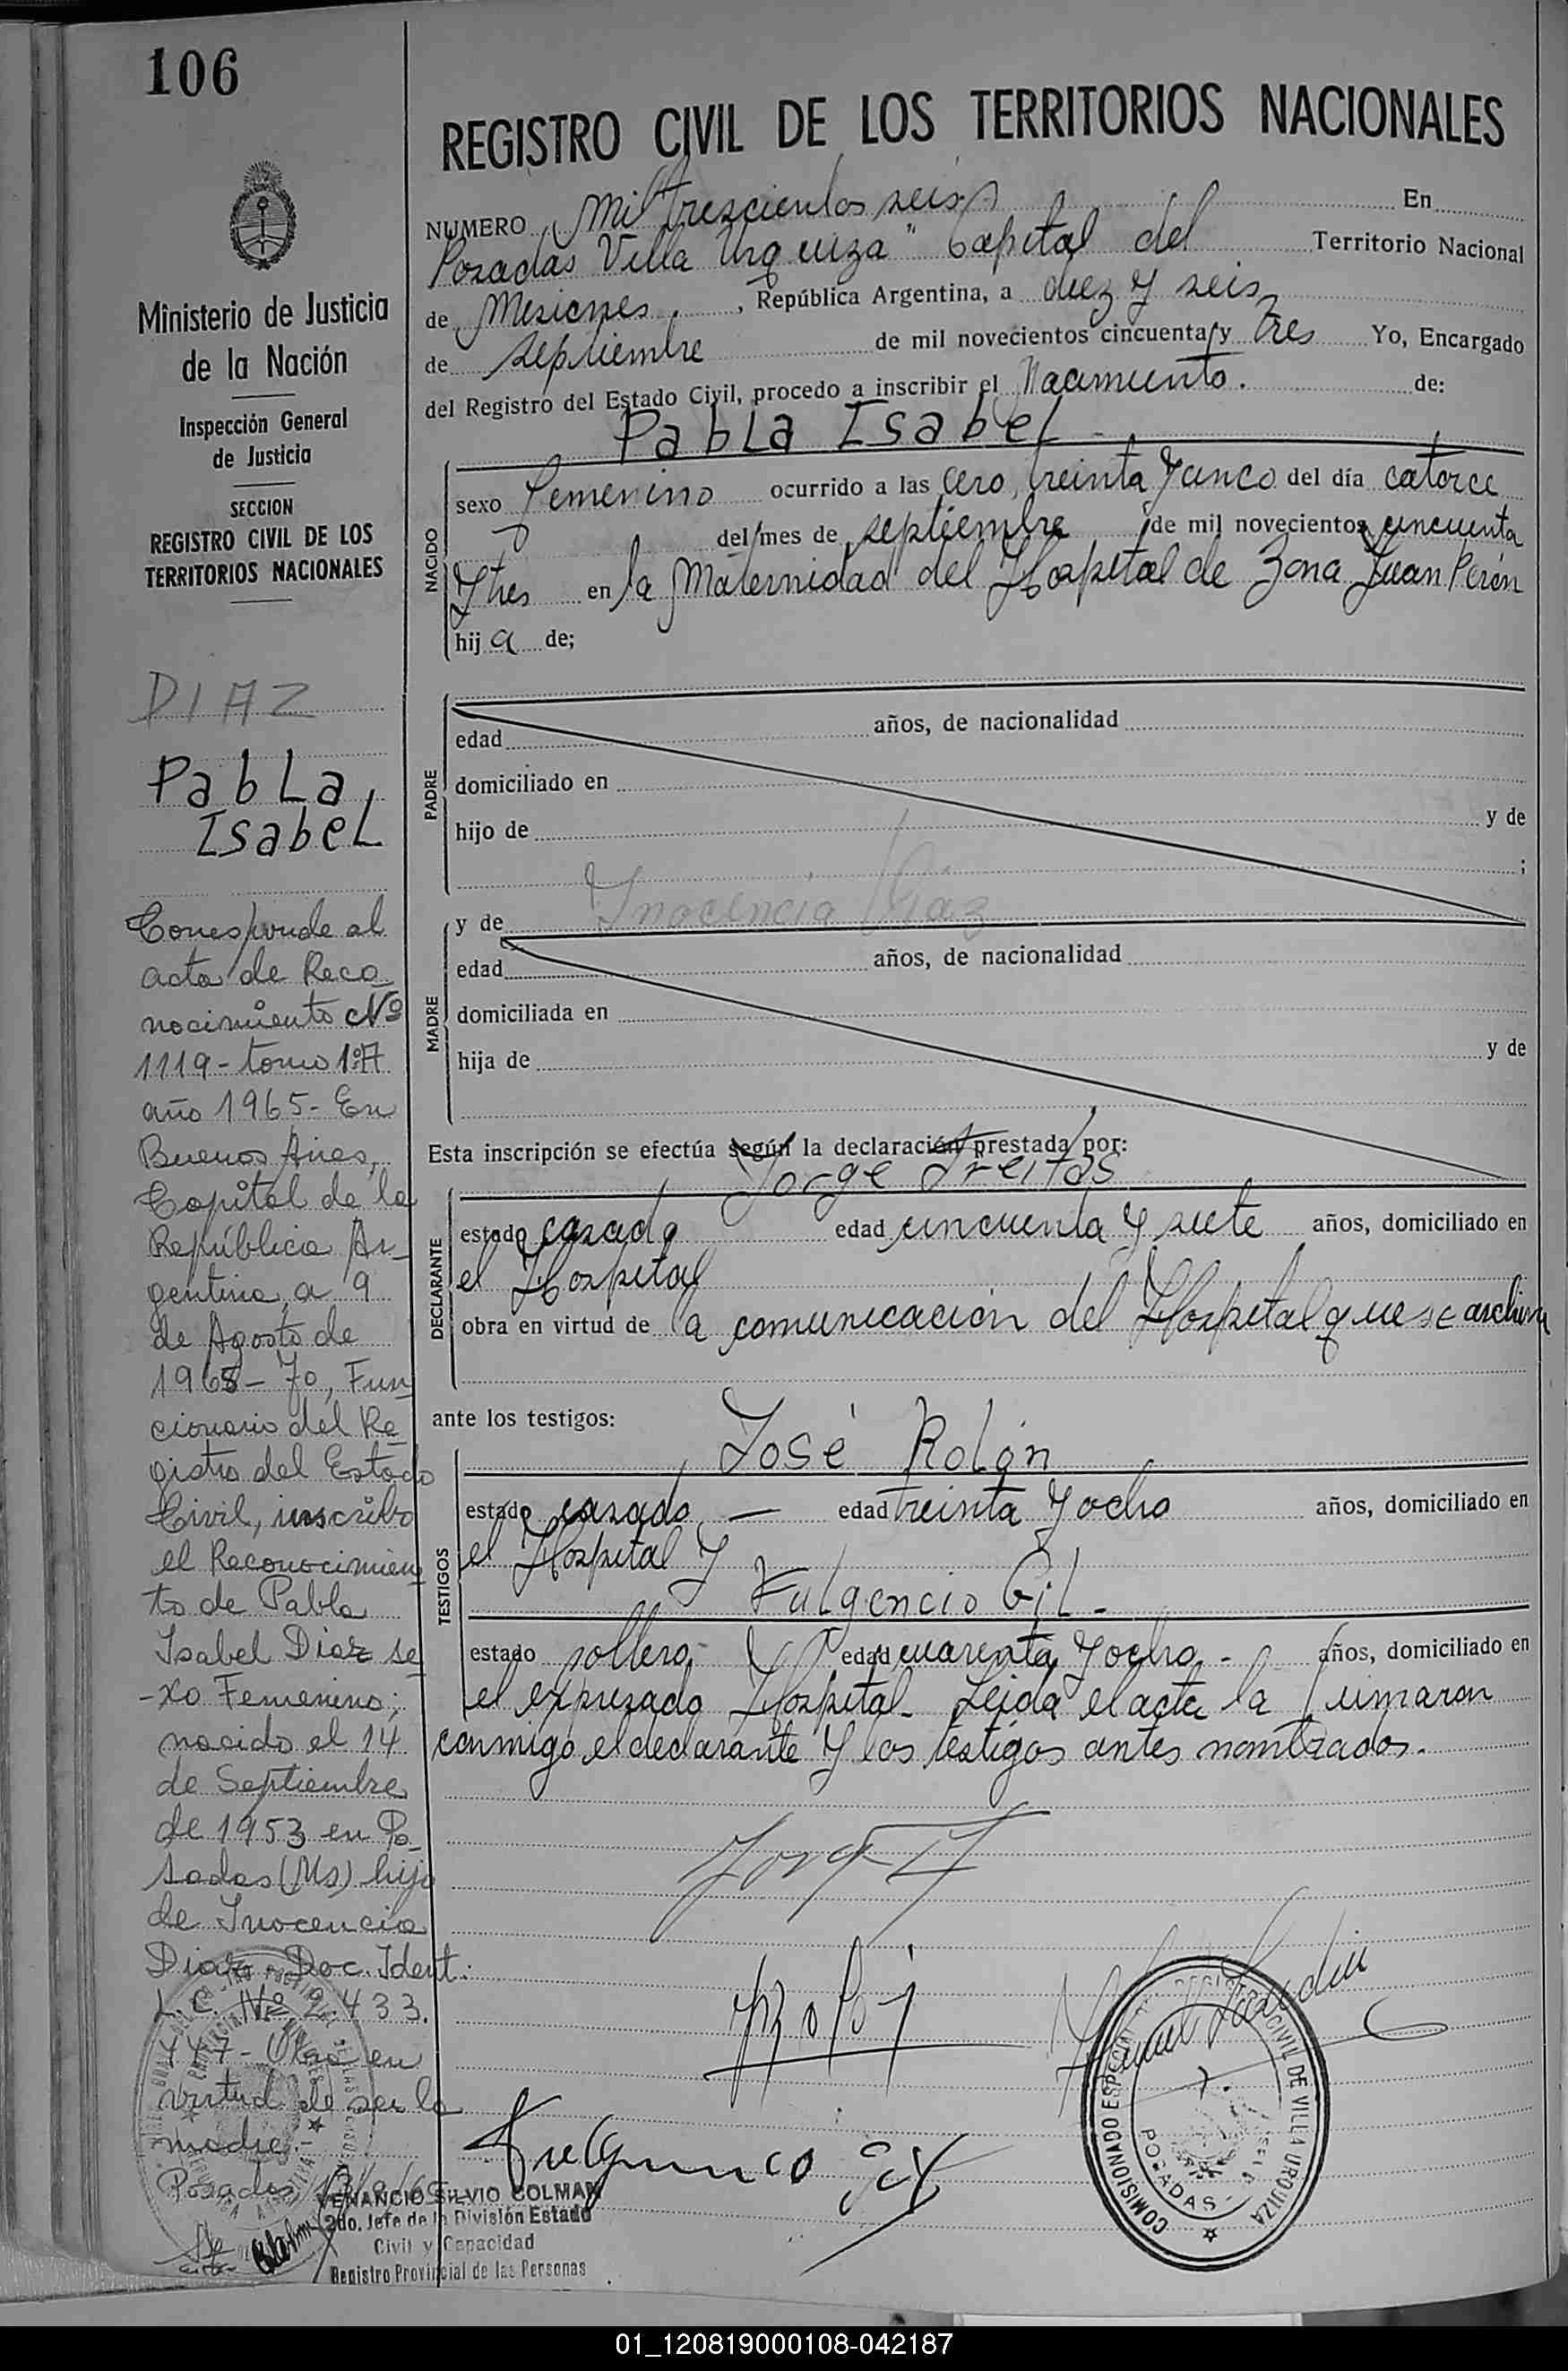 106
REGISTRO CIVIL DE LOS TERRITORIOS NACIONALES
NUMERO mil trescientos seis En
Posadas Villa Urquiza" Capital del Territorio Nacional
de Misiones, República Argentina, a diez y seis
de septiembre de mil novecientos cincuenta y tres Yo, Encargado
del Registro del Estado Civil, procedo a inscribir el Nacimiento. de:
Pabla Isabel -
NACIDO
sexo Femenino ocurrido a las cero, treinta y cinco del día catorce
del mes de septiembre de mil novecientos cincuenta
y tres en la Maternidad del Hospital de Zona Juan Perón
hija de;
PADRE
edad años, de nacionalidad
domiciliado en
hijo de y de
;
MADRE
y de Inocencia Diaz
edad años, de nacionalidad
domiciliada en
hija de y de
Esta inscripción se efectúa según la declaración prestada por:
Jorge Freitas
DECLARANTE
estado casado edad cincuenta y siete años, domiciliado en
el Hospital
obra en virtud de la comunicación del Hospital que se archiva
ante los testigos:
José Rolón
TESTIGOS
estado casado - edad treinta y ocho años, domiciliado en
el Hospital y
Fulgencio Gil -
estado soltero - edad cuarenta y ocho - años, domiciliado en
el expresado Hospital - Leida el acta la firmaron
conmigo el declarante y los testigos antes nombrados.
COMISIONADO ESPECIAL REGISTRO CIVIL DE VILLA URQUIZA
POSADAS
Ministerio de Justicia
de la Nación
Inspección General
de Justicia
SECCION
REGISTRO CIVIL DE LOS
TERRITORIOS NACIONALES
DIAZ
Pabla,
Isabel
Corresponde al
acta de Reco
nocimiento Nº
1119 - tomo 1ºA
año 1965 - En
Buenos Aires,
Capital de la
República Ar-
gentina, a 9
de Agosto de
1965 - Yo, Fun
cionario del Re
gistro del Estado
Civil, inscribo
el Reconocimien
to de Pabla
Isabel Diaz se
-xo Femenino;
nacido el 14
de Septiembre
de 1953 en Po-
sadas (Ms) hija
de Inocencia
Diaz - Doc. Ident.
L.C. Nº 2.433.
447 - Obra en
virtud de ser la
madre.-
Posadas
VENANCIO SILVIO COLMAN
2do. Jefe de la División Estado
Civil y Capacidad
Registro Provincial de las Personas
01_120819000108-042187